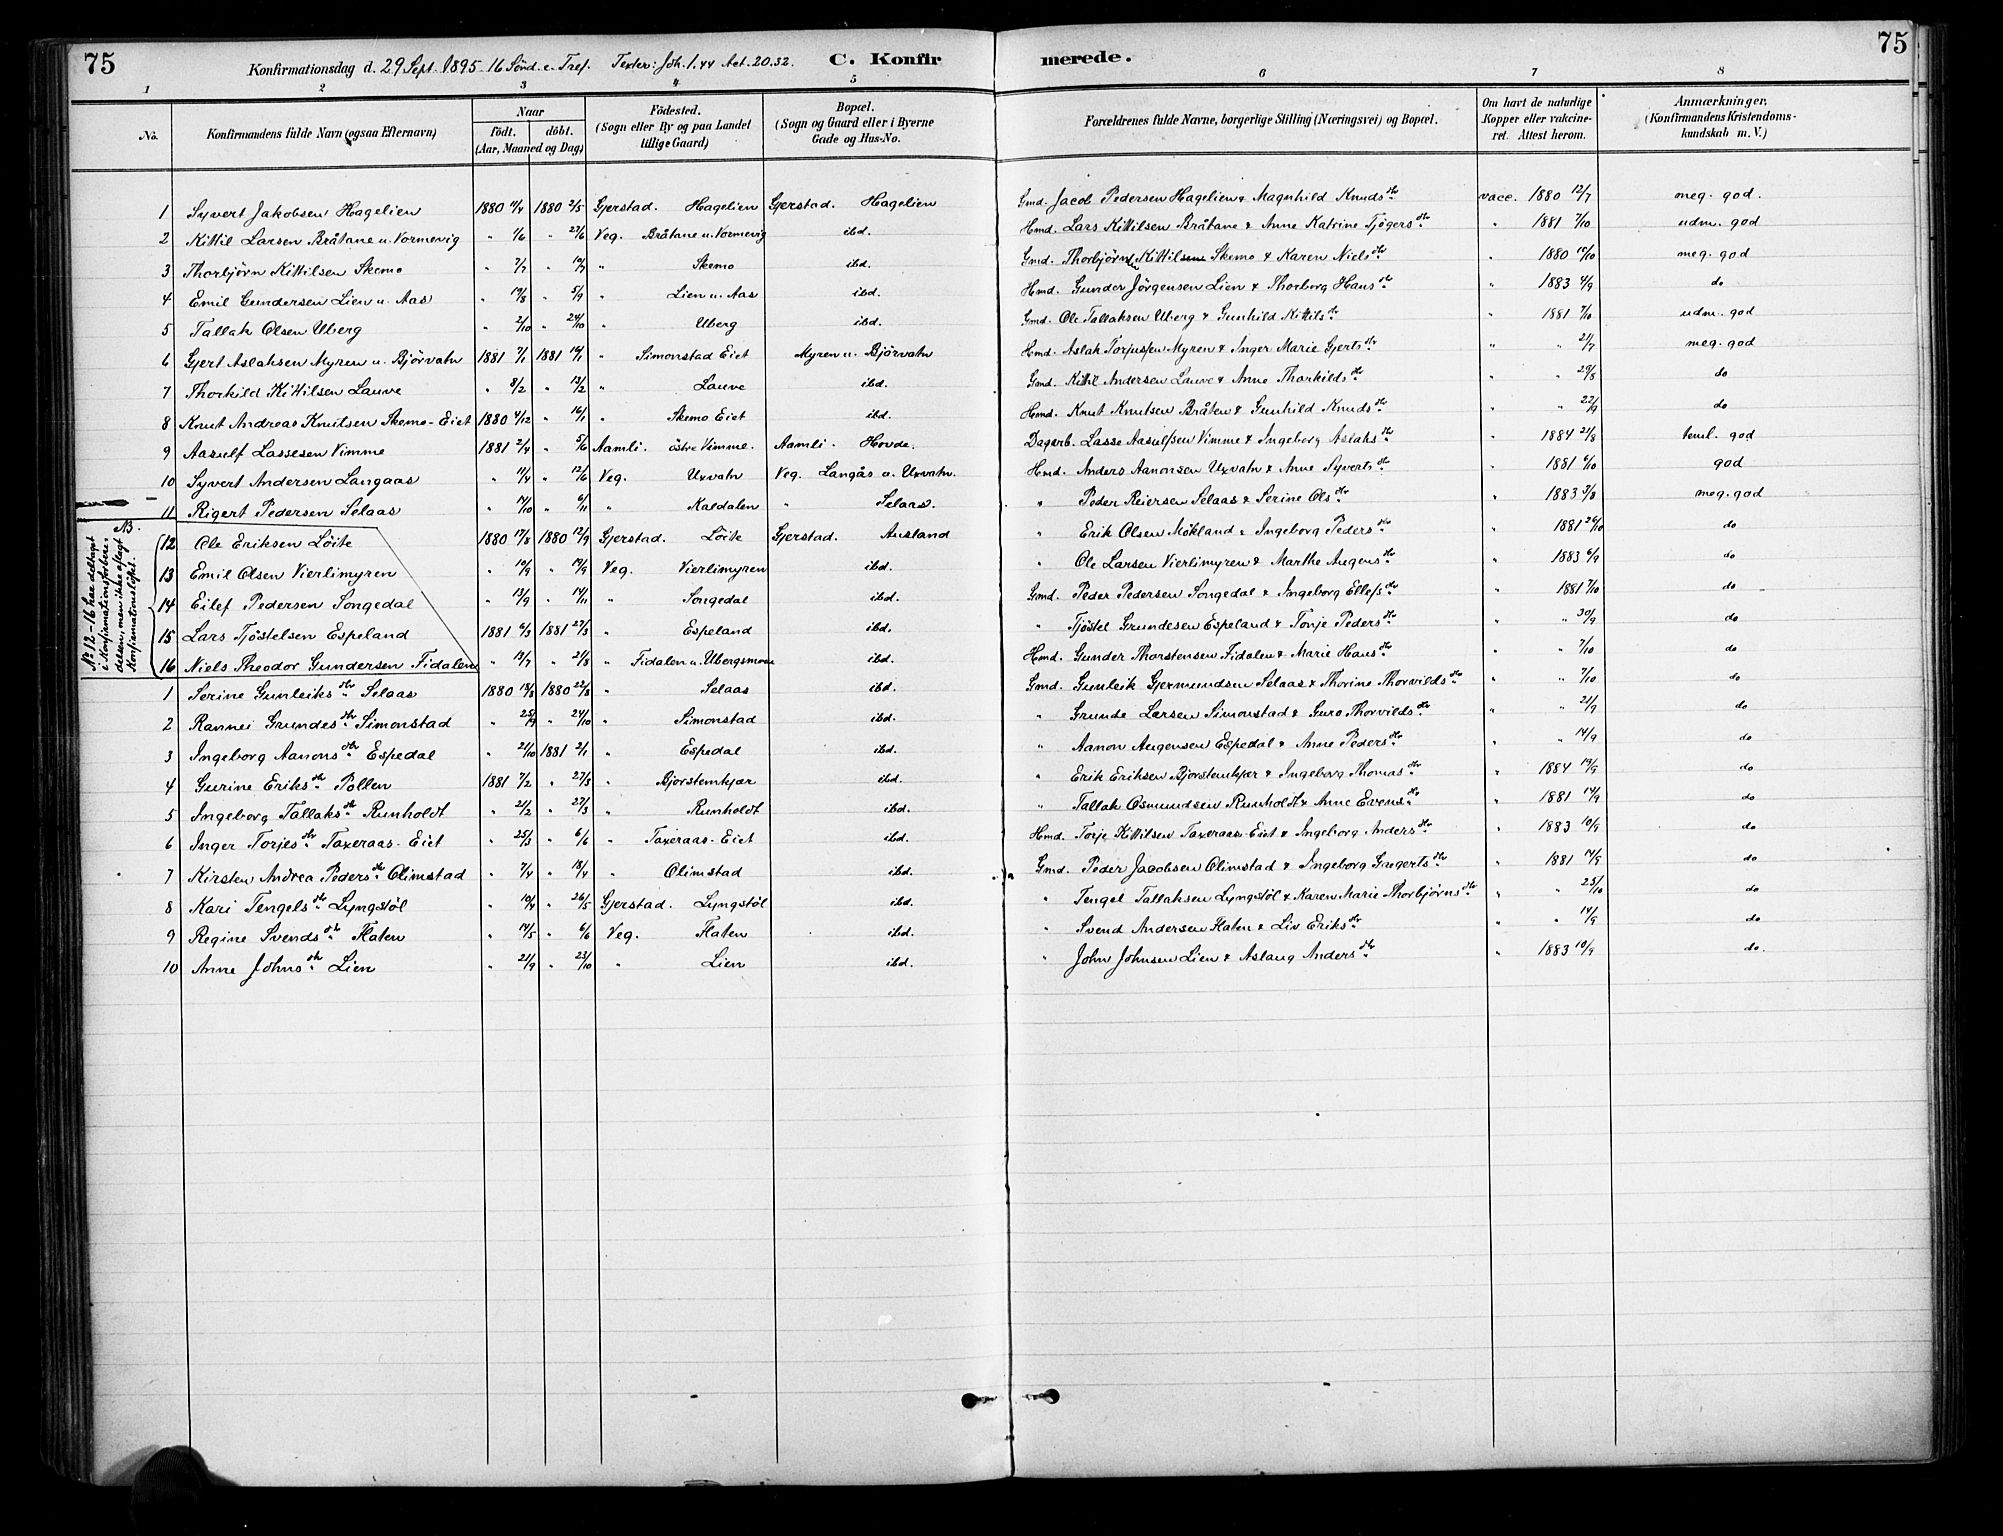 75
Konfirmationsdag d. 29 Sept. 1895. 16 Sönd. e. Tref. Texter: Joh. 1.44 Act. 20.32.
C. Konfirmerede.
75
1 2 3 4 5 6 7 8
No. Konfirmandens fulde Navn (ogsaa Efternavn) Naar födt. döbt. (Aar, Maaned og Dag) Födested. (Sogn eller By og paa Landet tillige Gaard) Bopæl. (Sogn og Gaard eller i Byerne Gade og Hus-No. Forældrenes fulde Navne, borgerlige Stilling (Næringsvei) og Bopæl. Om havt de naturlige Kopper eller vakcineret. Attest herom. Anmærkninger. (Konfirmandens Kristendomskundskab m. V.)
1 Syvert Jakobsen Hagelien 1880 11/4 1880 2/5 Gjerstad. Hagelien Gjerstad. Hagelien Gmd. Jacob Pedersen Hagelien & Magnhild Knudsdtr vacc. 1880 12/7 meg. god.
2 Kittil Larsen Bråtane u. Vormevig " 1/6 " 27/6 Veg. Bråtane u. Vormevig ibd. Hmd. Lars Kittilsen Bråtane & Anne Katrine Tjögersdtr " 1881 7/10 udm. god
3 Thorbjörn Kittilsen Skemo " 7/7 " " Skemo ibd. Gmd. Thorbjörn Kittilsen Skemo & Karen Nielsdtr " 1880 meg. god
4 Emil Gundersen Lien u. Aas " 19/8 " 5/9 " Lien u. Aas ibd. Hmd. Gunder Jörgensen Lien & Thorborg Hansdtr " 1883 4/9 do
5 Tallak Olsen Uberg " 2/10 " 24/10 " Uberg ibd. Gmd. Ole Tallaksen Uberg & Gunhild Kittilsdtr " 1881 7/10 udm. god
6 Gjert Aslaksen Myren u. Björvatn 1881 7/1 1881 16/1 " Simonstad Eiet Myren u. Björvatn Hmd. Aslak Torjussen Myren & Inger Marie Gjertsdtr " " 21/7 meg. god
7 Thorkild Kittilsen Lauve " 8/2 " 13/2 " Lauve ibd. Gmd. Kittil Andersen Lauve & Anne Thorkildsdtr " " 29/8 do
8 Knut Andreas Knutsen Skemo-Eiet 1880 4/12 " 16/1 " Skemo Eiet ibd. Hmd. Knut Knutsen Bråten & Gunhild Knudsdtr " " 22/9 do
9 Aasulf Lassesen Vimme 1881 2/4 " 5/6 Aamli. östre Vimme. Aamli. Hovde. Dagarb. Lasse Aasulfsen Vimme & Ingeborg Aslaksdtr " 1884 21/8 teml. god
10 Syvert Andersen Langaas " 11/4 " 12/6 Veg. Uxvatn Veg. Langås u. Uxvatn. Hmd. Anders Aanonsen Uxvatn & Anne Syvertsdtr " 1881 6/10 god
11 Rigert Pedersen Selaas " 14/10 " 6/11 " Kaldalen " Selaas. " Peder Reiersen Selaas & Serine Olsdtr " 1883 3/8 meg. god
NB. No 12-16 har deltaget i Konfirmationsforberedelsen, men ikke aflagt Konfirmationslöftet.
12 Ole Eriksen Löite 1880 17/8 1880 12/9 Gjerstad. Löite Gjerstad. Ausland " Erik Olsen Mökland & Ingeborg Pedersdtr " 1881 26/10 do
13 Emil Olsen Vierlimyren " 10/9 " 19/9 Veg. Vierlimyren ibd. " Ole Larsen Vierlimyren & Marthe Augensdtr " 1883 6/9 do
14 Eilef Pedersen Songedal " 13/9 " 14/11 " Songedal ibd. Gmd. Peder Pedersen Songedal & Ingeborg Ellefsdtr 1881 7/10 do
15 Lars Tjöstelsen Espeland 1881 6/3 1881 27/3 " Espeland ibd. " Tjöstel Grundesen Espeland & Tonje Pedersdtr " " 30/9 do
16 Niels Theodor Gundersen Fidalen " 12/7 " 21/8 " Fidalen u. Ubergsmoen ibd. Hmd. Gunder Thorstensen Fidalen & Marie Hansdtr " " 7/10 do
1 Serine Gunleiksdtr Selaas 1880 18/8 1880 22/8 " Selaas ibd. Gmd. Gunleik Gjermundsen Selaas & Thorine Thorvildsdtr " " 7/10 do
2 Rannei Grundesdtr Simonstad " 25/9 " 24/10 " Simonstad ibd. " Grunde Larsen Simonstad & Guro Thorvildsdtr " " 21/9 do
3 Ingeborg Aanonsdtr Espedal " 21/10 1881 2/1 " Espedal ibd. " Aanon Augensen Espedal & Anne Pedersdtr " " 14/9 do
4 Gurine Eriksdtr Pollen 1881 7/2 " 27/3 " Bjorstemkjær ibd. " Erik Eriksen Bjorstemkjær & Ingeborg Thomasdtr " 1884 19/9 do
5 Ingeborg Tallaksdtr Runholdt " 21/2 " 27/3 " Runholdt ibd. " Tallak Osmundsen Runholdt & Anne Evensdtr " 1881 14/9 do
6 Inger Torjesdtr Taxeraas-Eiet " 25/3 " 6/6 " Taxeraas-Eiet ibd. Hmd. Torje Kittilsen Taxeraas-Eiet & Ingeborg Andersdtr " 1883 10/9 do
7 Kirsten Andrea Pedersdtr Olimstad " 7/4 " 18/4 " Olimstad ibd. Gmd. Peder Jacobsen Olimstad & Ingeborg Ingertsdtr " 1881 14/9 do
8 Kari Tengelsdtr Lyngstöl " 10/4 " 26/5 Gjerstad. Lyngstöl ibd. " Tengel Tallaksen Lyngstöl & Karen Marie Thorbjörnsdtr " " 25/10 do
9 Regine Svendsdtr Flaten " 14/5 " 6/6 Veg. Flaten ibd. " Svend Andersen Flaten & Liv Eriksdtr " " 14/9 do
10 Anne Johnsdtr Lien " 21/9 " 23/10 " Lien ibd. " John Johnsen Lien & Aslaug Andersdtr " 1883 10/9 do.